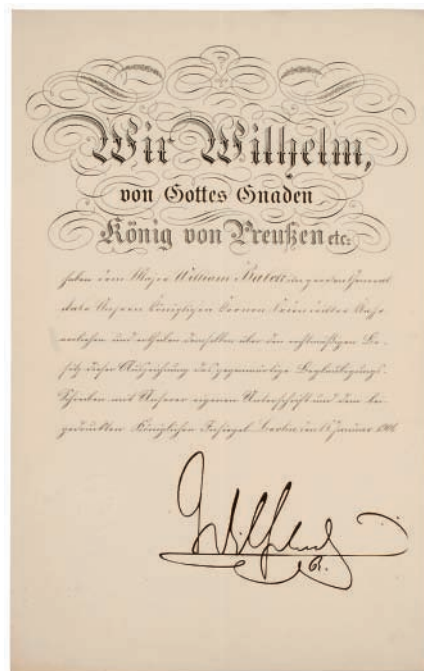 Wir Wilhelm,
von Gottes Gnaden
König von Preußen etc.
haben dem Major William
Unsern Königlichen Kronen Orden
verliehen und ertheilen demselben über den rechtmäßigen Be-
sitz dieser Auszeichnung das gegenwärtige Beglaubigungs-
Schreiben mit Unserer eigenen Unterschrift und dem bei-
gedruckten Königlichen Insiegel. Berlin, den Januar
Wilhelm